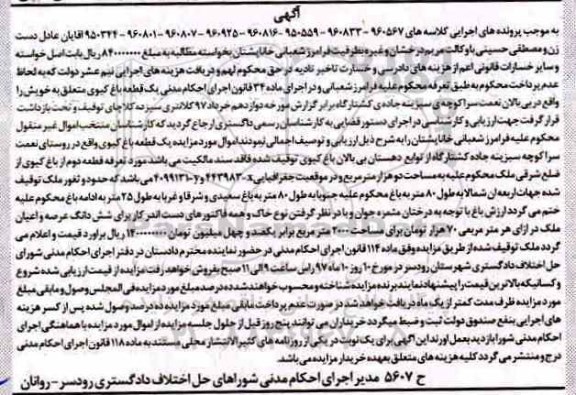 آگهی
به موجب پرونده های اجرایی کلاسه های ۹۶۰۵۶۷ - ۹۶۰۸۳۳ - ۹۵۰۵۵۹ - ۹۶۰۸۱۶ - ۹۶۰۹۲۵ - ۹۶۰۸۰۷ - ۹۶۰۸۰۱ - ۹۵۰۳۴۴ آقایان عادل دست
زن و مصطفی حسینی با وکالت مریم درخشان و غیره بطرفیت فرامرز شعبانی خاناپشتان بخواسته مطالبه به مبلغ ۸۴۰۰۰۰۰۰۰ ریال بابت اصل خواسته
و سایر خسارات قانونی اعم از هزینه های دادرسی و خسارت تاخیر تادیه در حق محکوم لهم و دریافت هزینه های اجرایی نیم عشر دولت که به لحاظ
عدم پرداخت محکوم به طبق تعرفه محکوم علیه فرامرز شعبانی و در اجرای ماده ۳۴ قانون اجرای احکام مدنی یک قطعه باغ کیوی متعلق به خویش را
واقع در بی بالان نعمت سرا کوچه ی سبزینه جاده ی کشتارگاه برابر گزارش مورخه دوازدهم خرداد ۹۷ کلانتری سیزده کلاچای توقیف و تحت بازداشت
قرار گرفت جهت ارزیابی و کارشناسی در اجرای دستور قضایی به کارشناسان رسمی داگستری ارجاع گردید که کارشناسان منتخب اموال غیر منقول
محکوم علیه فرامرز شعبانی خاناپشتان را به شرح ذیل ارزیابی و توصیف اجمالی نمودند اموال مورد مزایده یک قطعه باغ کیوی واقع در روستای نعمت
سرا کوچه سبزینه جاده کشتارگاه از توابع دهستان بی بالان باغ کیوی توقیف شده فاقد سند مالکیت می باشد مورد تعرفه قطعه دوم از باغ کیوی از
ضلع شرقی ملک محکوم علیه به مساحت دو هزار متر مربع و در موقعیت جغرافیایی x-۴۴۳۹۸۳ و y-۴۰۹۹۱۳۱ می باشد که حدود و ثغور ملک توقیف
شده جهات اربعه آن شمالا به طول ۸۰ متر به باغ محکوم علیه جنوبا به طول ۸۰ متر به باغ سعیدی و شرقا و غربا به طول ۲۵ متر به ادامه باغ محکوم علیه
ختم می گردد ارزش باغ با توجه به درختان مثمره جوان و با در نظر گرفتن نوع خاک و همه فاکتورهای دست اندر کار برای شش دانگ عرصه و اعیان
ملک در ازای هر متر مربعی ۷۰ هزار تومان برای مساحت ۲۰۰۰ متر مربع برابر یکصد و چهل میلیون تومان ۱۴۰۰۰۰۰۰۰۰ ریال برآورد قیمت و اعلام می
گردد ملک توقیف شده از طریق مزایده وفق ماده ۱۱۴ قانون اجرای احکام مدنی در حضور نماینده محترم دادستان در دفتر اجرای احکام مدنی شورای
حل اختلاف دادگستری شهرستان رودسر در مورخ ۱۰ روز ۱۰ ماه ۹۷ راس ساعت ۹ الی ۱۱ صبح بفروش خواهد رفت مزایده از قیمت ارزیابی شده شروع
و کسانیکه بالاترین قیمت را پیشنهاد نمایند برنده مزایده شناخته و محسوب خواهند شد ده درصد مبلغ مورد مزایده فی المجلس وصول و مابقی مبلغ
مورد مزایده ظرف مدت کمتر از یک ماه دریافت خواهد شد در صورت عدم پرداخت مابقی مبلغ مورد مزایده ده درصد وصول شده پس از کسر هزینه
های اجرایی بنفع صندوق دولت ثبت و ضبط میگردد خریداران می توانند پنج روز قبل از حلول جلسه مزایده از اموال مورد مزایده با هماهنگی اجرای
احکام مدنی شورا بازدید بعمل آورند این آگهی برای یک نوبت در یکی از روزنامه های کثیر الانتشار محلی مستند به ماده ۱۱۸ قانون اجرای احکام مدنی
درج و منتشر می گردد کلیه هزینه های متعلق بعهده خریدار مزایده می باشد.
ح ۵۶۰۷ مدیر اجرای احکام مدنی شوراهای حل اختلاف دادگستری رودسر - روانان